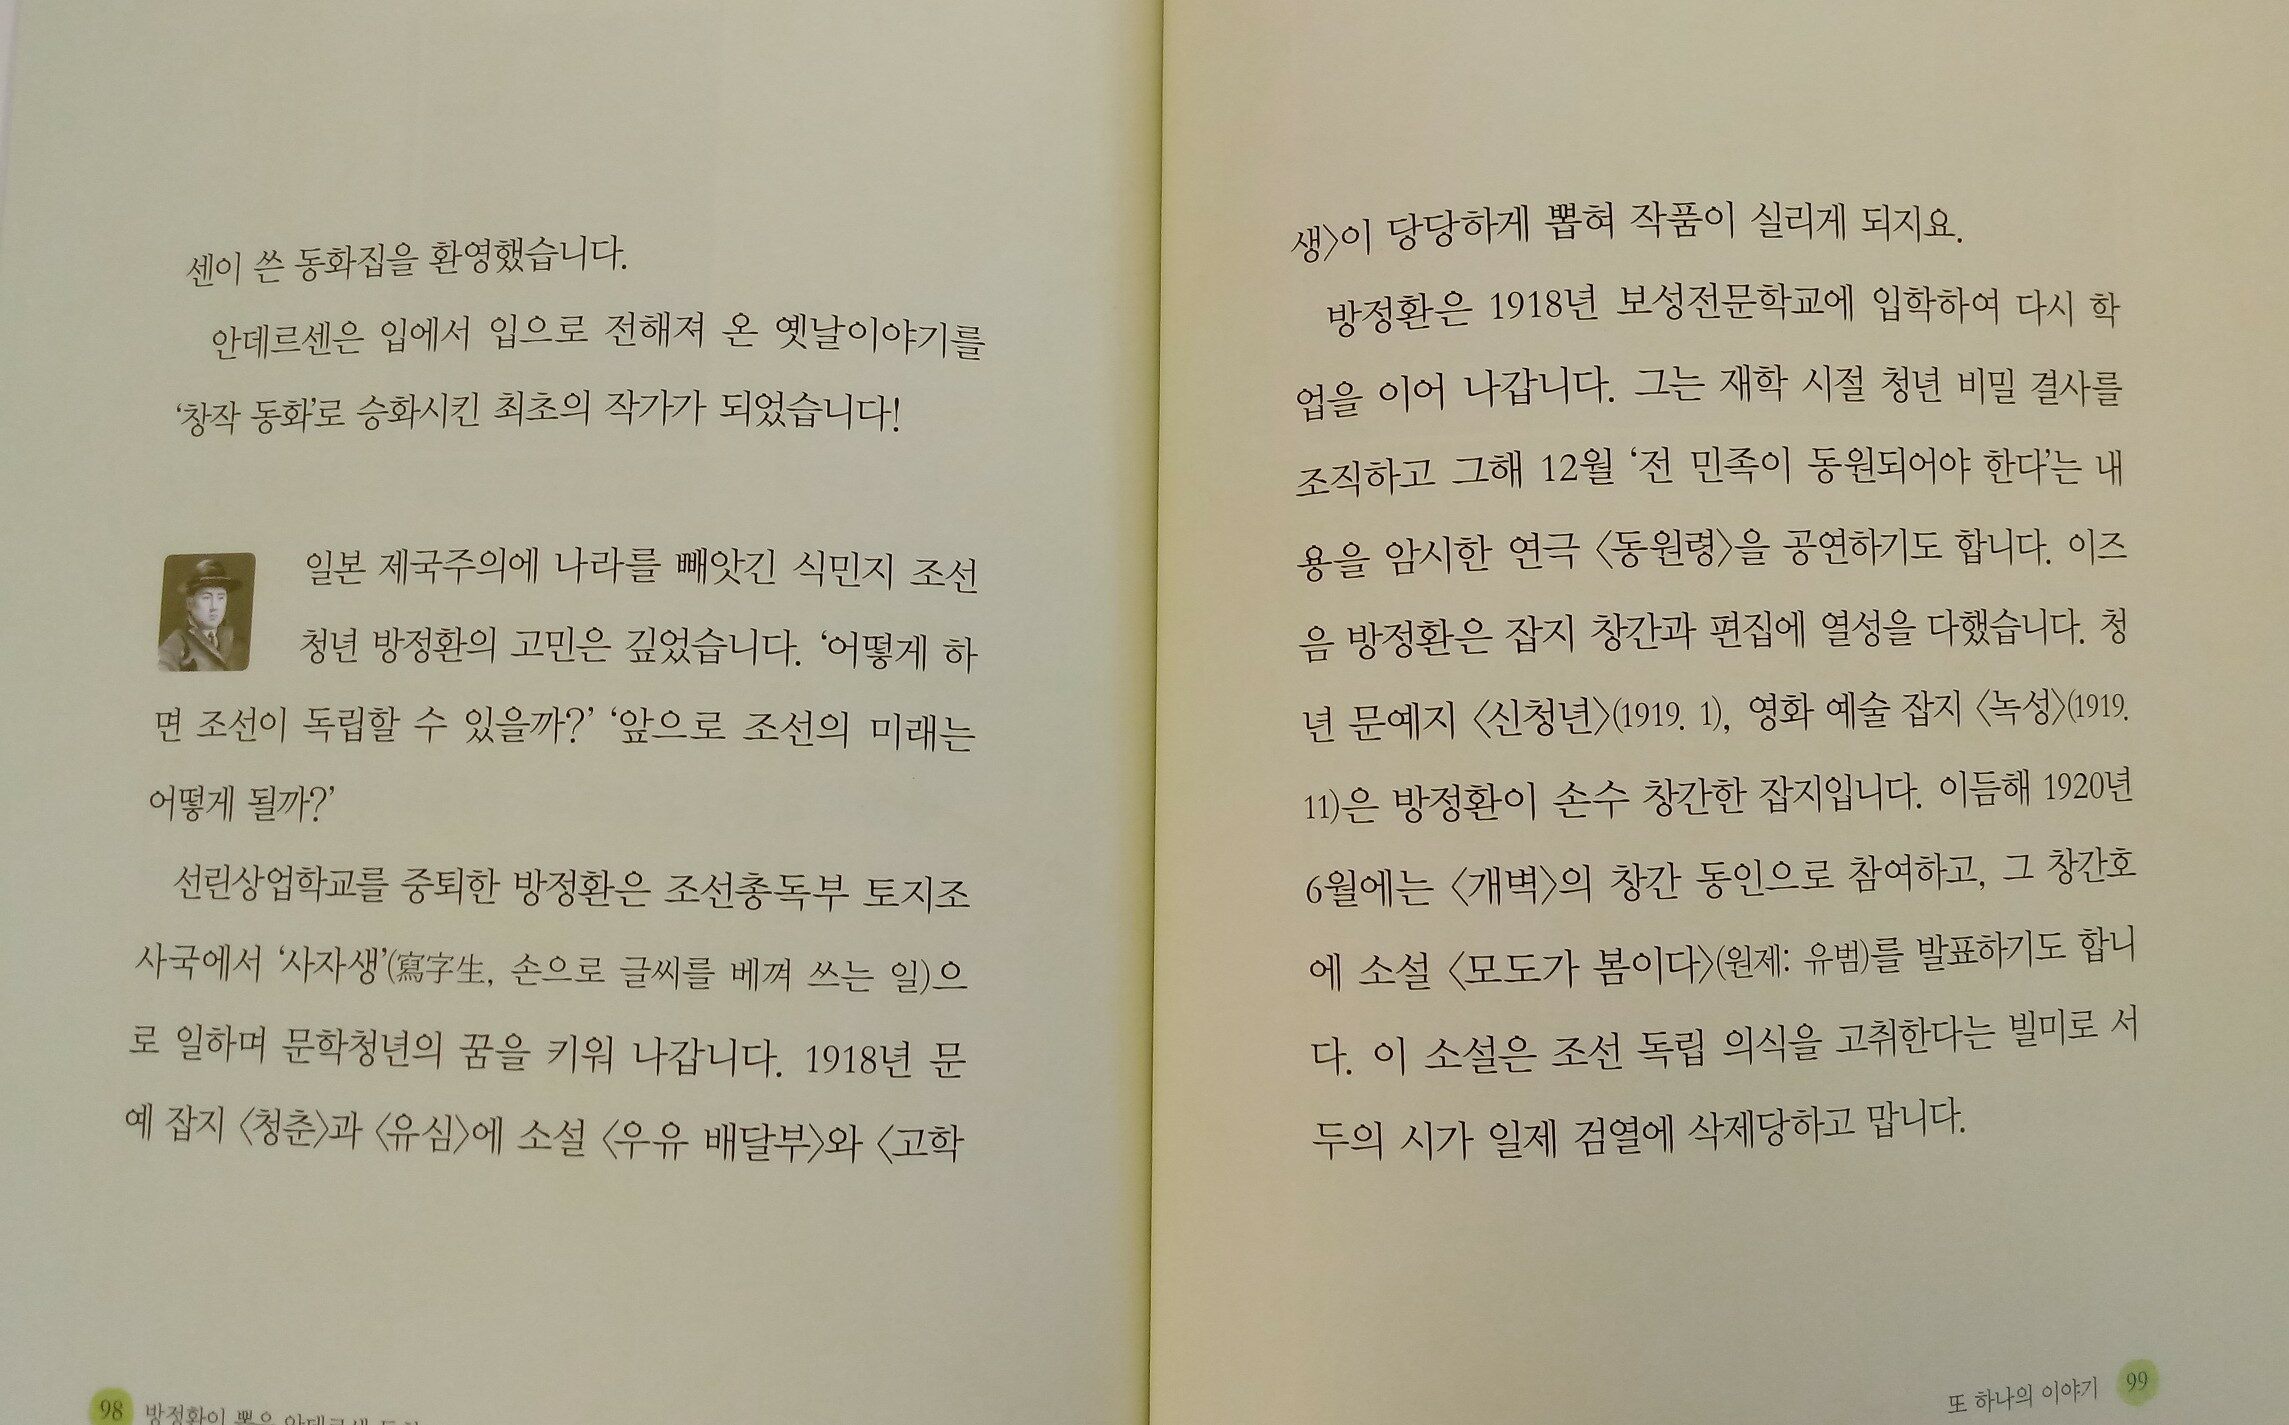 센이 쓴 동화집을 환영했습니다.
안데르센은 입에서 입으로 전해져 온 옛날이야기를
‘창작 동화’로 승화시킨 최초의 작가가 되었습니다!
일본 제국주의에 나라를 빼앗긴 식민지 조선
청년 방정환의 고민은 깊었습니다. ‘어떻게 하
면 조선이 독립할 수 있을까?’ ‘앞으로 조선의 미래는
어떻게 될까?’
선린상업학교를 중퇴한 방정환은 조선총독부 토지조
사국에서 ‘사자생’(寫字生, 손으로 글씨를 베껴 쓰는 일)으
로 일하며 문학청년의 꿈을 키워 나갑니다. 1918년 문
예 잡지 〈청춘〉과 〈유심〉에 소설 〈우유 배달부〉와 〈고학
98 방정환이 뽑은 안데르센 동화
생〉이 당당하게 뽑혀 작품이 실리게 되지요.
방정환은 1918년 보성전문학교에 입학하여 다시 학
업을 이어 나갑니다. 그는 재학 시절 청년 비밀 결사를
조직하고 그해 12월 ‘전 민족이 동원되어야 한다’는 내
용을 암시한 연극 〈동원령〉을 공연하기도 합니다. 이즈
음 방정환은 잡지 창간과 편집에 열성을 다했습니다. 청
년 문예지 〈신청년〉(1919. 1), 영화 예술 잡지 〈녹성〉(1919.
11)은 방정환이 손수 창간한 잡지입니다. 이듬해 1920년
6월에는 〈개벽〉의 창간 동인으로 참여하고, 그 창간호
에 소설 〈모도가 봄이다〉(원제: 유범)를 발표하기도 합니
다. 이 소설은 조선 독립 의식을 고취한다는 빌미로 서
두의 시가 일제 검열에 삭제당하고 맙니다.
또 하나의 이야기 99